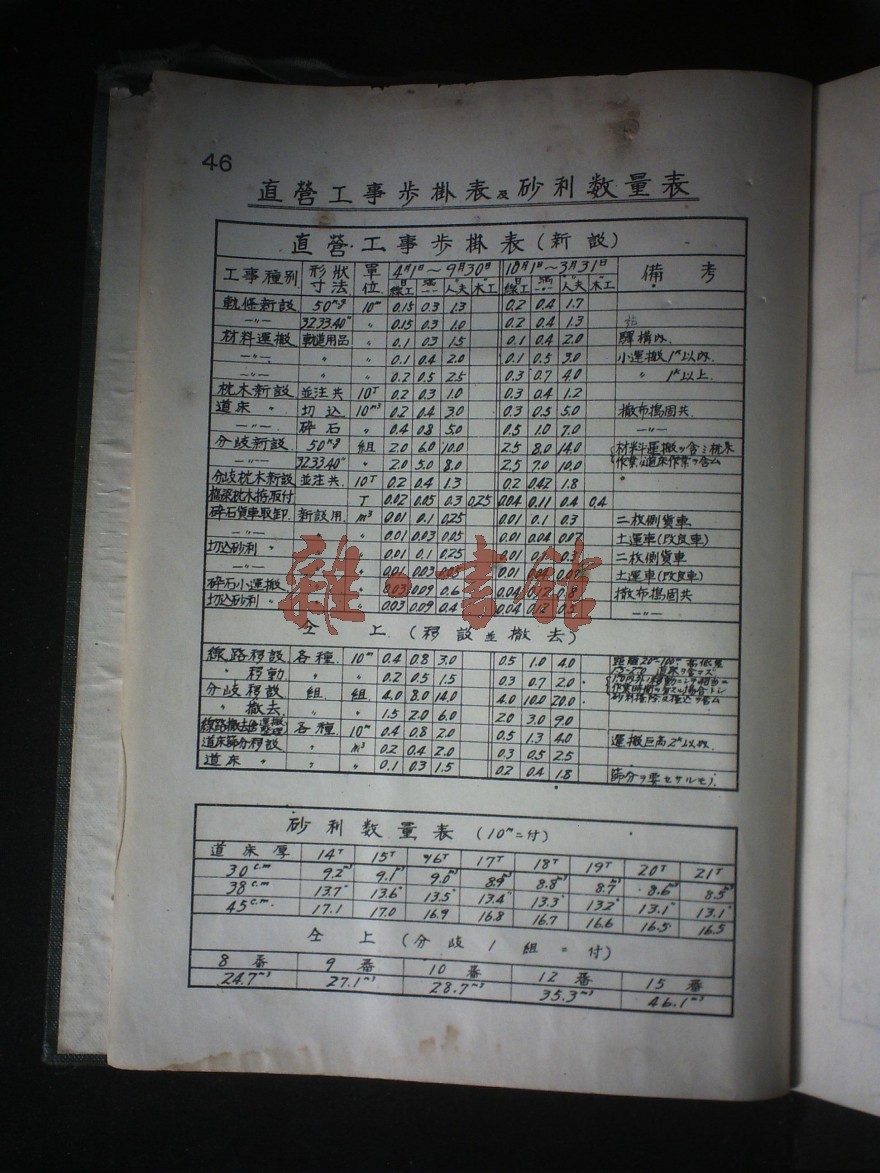 46
直營工事歩掛表及砂利数量表
直營工事歩掛表(新設)
工事種別 形状寸法 單位 4月1日~9月30日 10月1日~3月31日 備考
線工 人夫 木工 線工 人夫 木工
軌條新設 50 10m 0.15 0.3 1.3 0.2 0.4 1.7
〃 32.33.40 〃 0.15 0.3 1.0 0.2 0.4 1.3
材料運搬 軌道用品 〃 0.1 0.3 1.5 0.1 0.4 2.0 驛構内
〃 〃 〃 0.1 0.4 2.0 0.1 0.5 3.0 小運搬1以内
〃 〃 〃 0.2 0.5 2.5 0.3 0.7 4.0 〃 1以上
枕木新設 並注共 10T 0.2 0.3 1.0 0.3 0.4 1.2
道床〃 切込 10m³ 0.2 0.4 3.0 0.3 0.5 5.0 撒布搗固共
〃 砕石 〃 0.4 0.8 5.0 0.5 1.0 7.0 〃
分歧新設 50 組 2.0 6.0 10.0 2.5 8.0 14.0 材料運搬ヲ含ミ
〃 32.33.40 〃 2.0 5.0 8.0 2.5 7.0 10.0 作業道床作業ヲ含ム
分歧枕木新設 並注共 10T 0.2 0.4 1.3 0.2 0.42 1.8 〃
T 0.02 0.05 0.3 0.25 0.04 0.11 0.4 0.4
砕石貨車取卸 新設用 m³ 0.01 0.1 0.25 0.01 0.1 0.3 二枚側貨車
〃 〃 〃 0.01 0.03 0.05 0.01 0.04 0.07 土運車(改良車)
切込砂利〃 〃 0.01 0.1 0.25 0.01 二枚側貨車
〃 〃 0.01 0.03 0.01 土運車(改良車)
砕石小運搬 0.03 0.09 0.6 0.04 0.12 0.8 撒布搗固共
切込砂利〃 0.03 0.09 0.4 0.04 0.12 〃
仝上(移設並撤去)
線路移設 各種 10m 0.4 0.8 3.0 0.5 1.0 4.0
〃移動 〃 〃 0.2 0.5 1.5 0.3 0.7 2.0
分歧移設 組 組 4.0 8.0 14.0 4.0 10.0 20.0
〃撤去 〃 〃 1.5 2.0 6.0 2.0 3.0 9.0
線路撤去後運搬整理 各種 10m 0.4 0.8 2.0 0.5 1.3 4.0 運搬巨离2以内
道床篩分移設 〃 m³ 0.2 0.4 2.0 0.3 0.5 2.5
道床〃 〃 〃 0.1 0.3 1.5 0.2 0.4 1.8 篩分ヲ要セサルモノ
砂利数量表(10m=付)
道床厚 14T 15T 16T 17T 18T 19T 20T 21T
30cm 9.2m³ 9.1m³ 9.0m³ 8.9m³ 8.8m³ 8.7m³ 8.6m³ 8.5m³
38cm 13.7〃 13.6〃 13.5〃 13.4〃 13.3〃 13.2〃 13.1〃 13.1〃
45cm 17.1 17.0 16.9 16.8 16.7 16.6 16.5 16.5
仝上(分歧1組=付)
8番 9番 10番 12番 15番
24.7m³ 27.1m³ 28.7m³ 35.3m³ 46.1m³
雜·書館